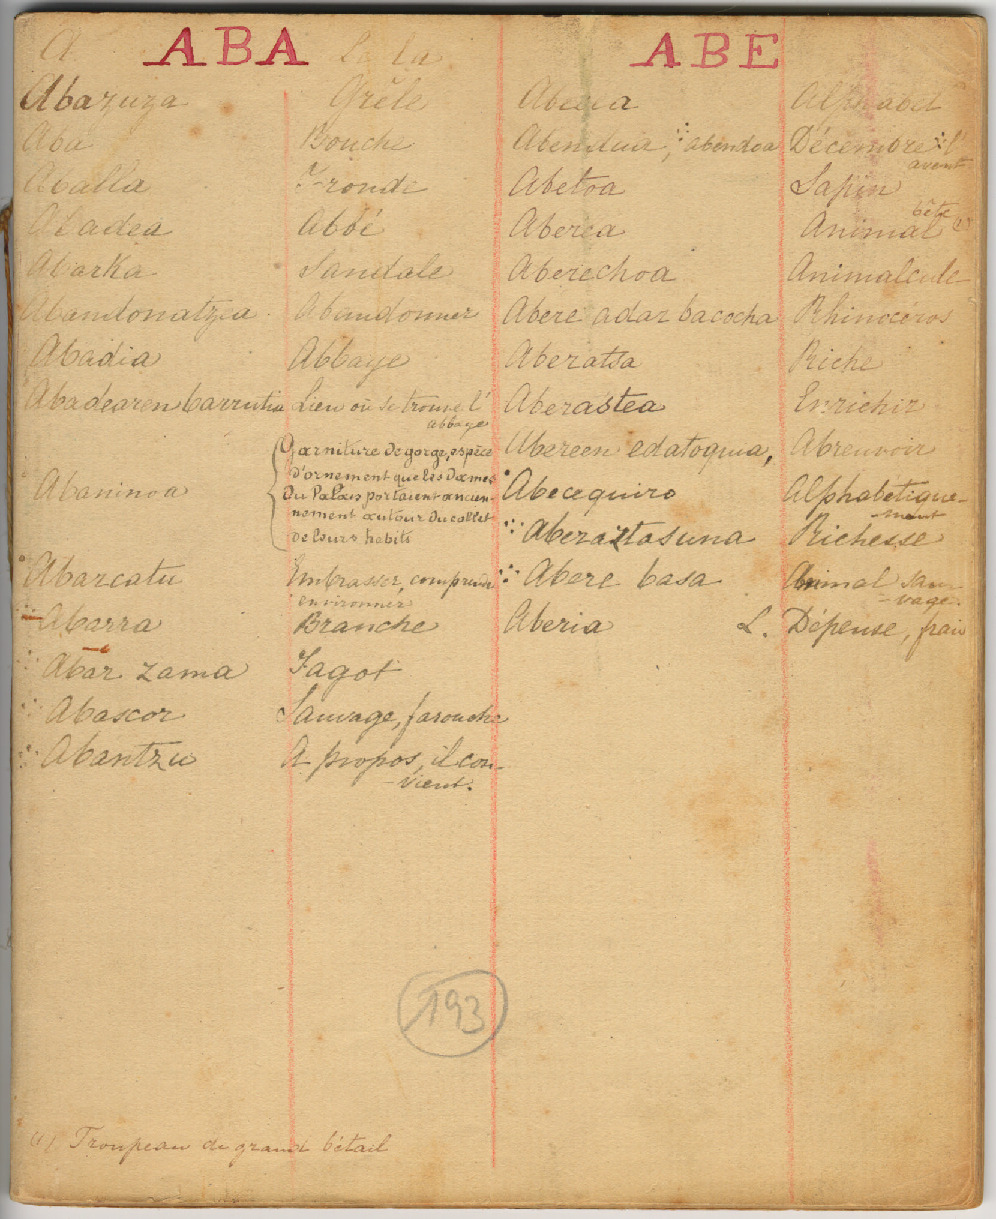 ABA
A Le la
Abazuza Grêle
Aba Bouche
Aballa Fronde
Abadea Abbé
Abarka Sandale
Abandonatzea Abandonner
Abadia Abbaye
Abadearen barrutia Lieu où se trouve l'
abbaye
Abaninoa Garniture de gorge, espèce
d'ornement que les Dames
du Palais portaient ancien-
nement autour du collet
de leurs habits
Abarcatu Embrasser, comprendre
environner
Abarra Branche
Abar zama Fagot
Abascor Sauvage, farouche
Abantzu A propos, il con-
vient.
ABE
Abecea Alphabet
Abendua, abendoa Décembre l'
avent
Abetoa Sapin
bête
Aberea Animal (1)
Aberechoa Animalcule
Abere adar bacocha Rhinoceros
Aberatsa Riche
Aberastea Enrichir
Abereen edatoquia, Abreuvoir
Abecequiro Alphabétique-
ment
Aberaztasuna Richesse
Abere basa Animal sau-
vage.
Aberia L. Dépense, frais
193
(1) Troupeau de grand bétail